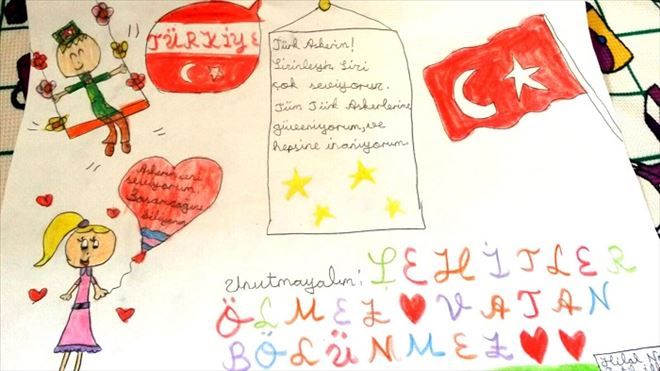 TÜRKİYE
Türk Askerim!
Sizinleyiz Sizi
çok seviyoruz.
Tüm Türk Askerlerine
güveniyorum, ve
hepsine inanıyorum
Askerim seni
seviyorum
Başaracağını
Unutmayalım; ŞEHİTLER
ÖLMEZ VATAN
BÖLÜNMEZ
Hilal